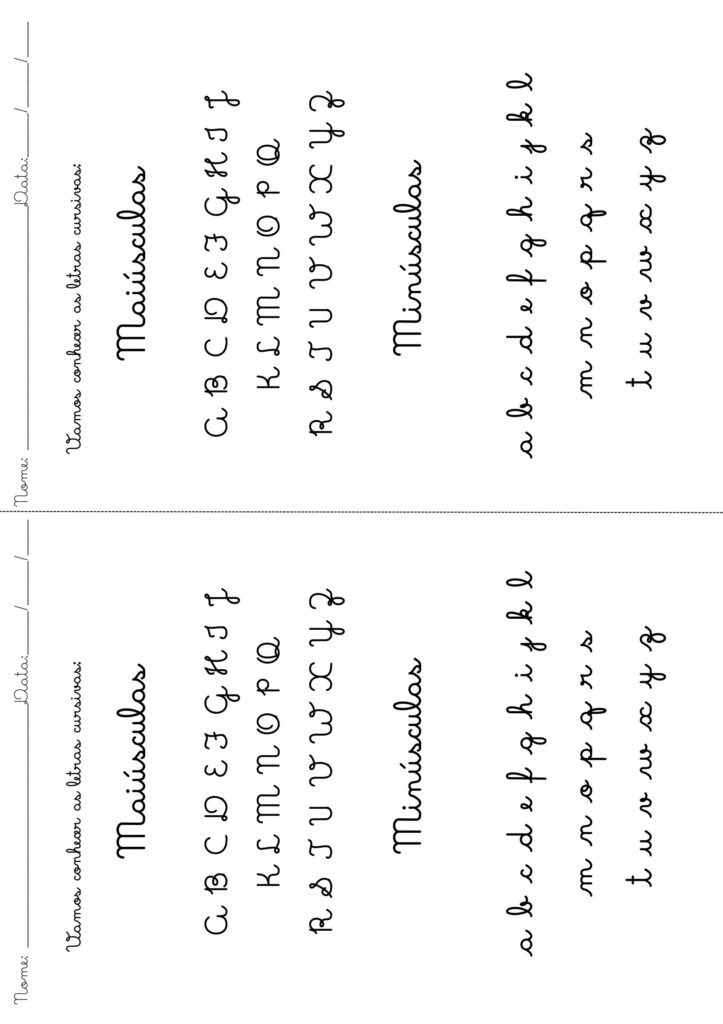 Nome: ____________________ Data: ____/____/____
Vamos conhecer as letras cursivas:
Maiúsculas
A B C D E F G H I J
K L M N O P Q
R S T U V W X Y Z
Minúsculas
a b c d e f g h i j k l
m n o p q r s
t u v w x y z
Nome: ____________________ Data: ____/____/____
Vamos conhecer as letras cursivas:
Maiúsculas
A B C D E F G H I J
K L M N O P Q
R S T U V W X Y Z
Minúsculas
a b c d e f g h i j k l
m n o p q r s
t u v w x y z